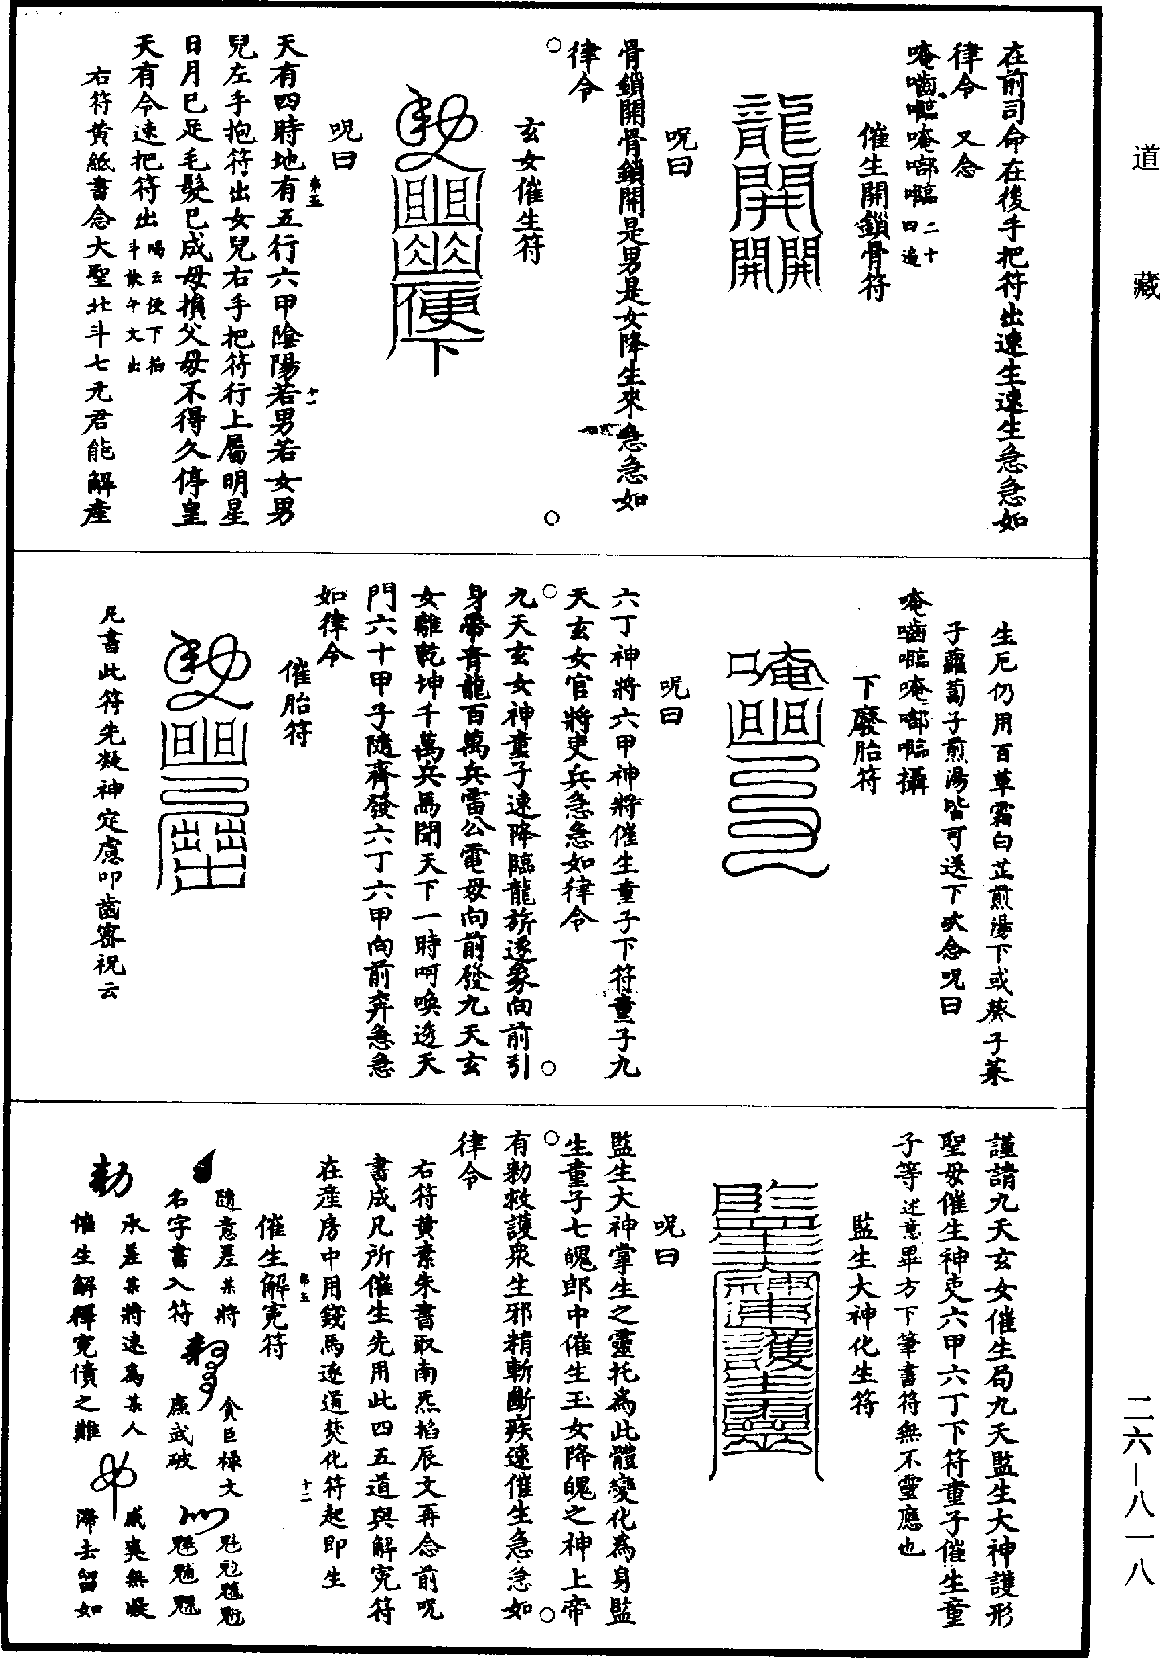 道藏
在前司命在後手把符出速生速生急急如
律令 又念
唵嚙𠿟唵啷𠿟二十四遍
催生開鎖骨符
龍開開開
呪曰
骨鎖開骨鎖開是男是女降生來急急如
律令
玄女催生符
敕
便下
呪曰
天有四時地有五行六甲陰陽若男若女男
兒左手抱符出女兒右手把符行上屬明星
日月已足毛髮已成母損父母不得久停皇
天有令速把符出
右符黃紙書念大聖北斗七元君能解產
弟五
十一
生厄仍用百草霜白芷煎湯下或葵子萊
子蘿蔔子煎湯皆可送下吹念呪曰
下癈胎符
呪曰
六丁神將六甲神將催生童子下符童子九
天玄女官將吏兵急急如律令
九天玄女神童子速降臨龍旂逐象向前引
身帶青龍百萬兵雷公電母向前發九天玄
女離乾坤千萬兵馬聞天下一時呵喚送天
門六十甲子隨齊發六丁六甲向前奔急急
如律令
催胎符
敕
凡書此符先凝神定慮叩齒密祝云
謹請九天玄女催生局九天監生大神護形
聖母催生神吏六甲六丁下符童子催生童
子等述意畢方下筆書符無不靈應也
監生大神化生符
呪曰
監生大神掌生之靈托為此體變化為身監
生童子七魄郎中催生玉女降魄之神上帝
有勑救護衆生邪精斬斷疾速催生急急如
律令
右符黃素朱書取南炁掐辰文再念前呪
書成凡所催生先用此四五道與解寃符
在產房中用錢馬逐道焚化符起即生
催生解寃符
弟五
十二
隨意差某將
名字書入符
貪巨祿文
廉武破
勑
承差某將速為某人
催生解釋寃債之難
滯去留如
二六—八一八